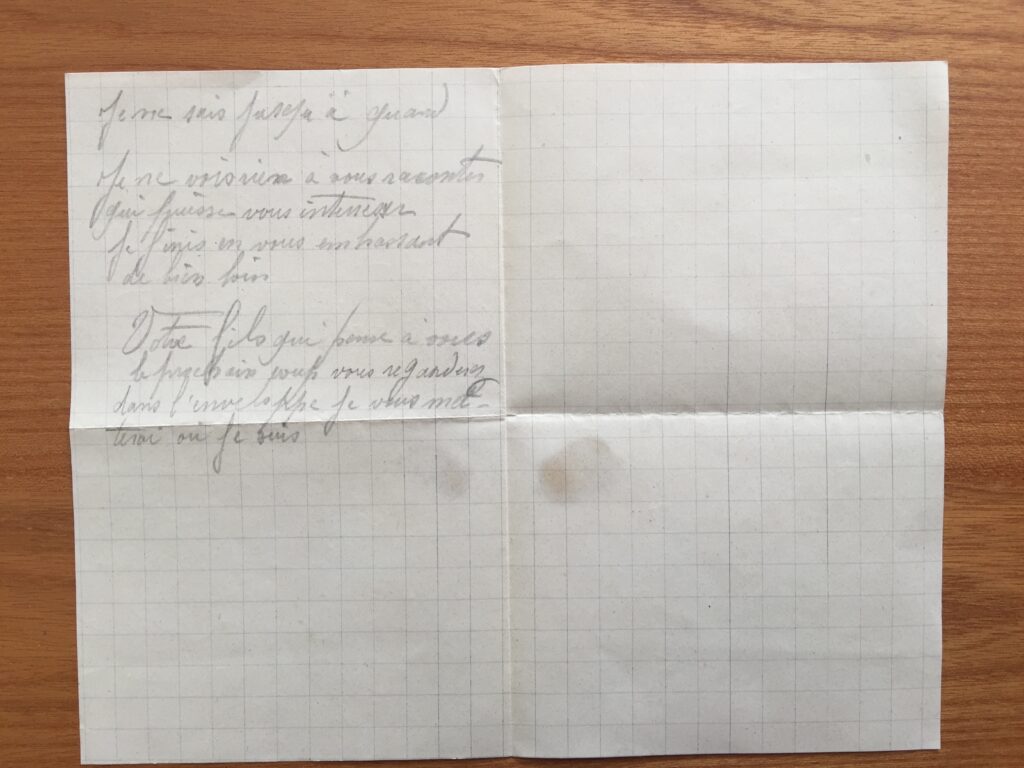 Je ne sais jusqu'à quand
Je ne vois rien à vous raconter
qui puisse vous intéresser
Je finis en vous embrassant
de bien loin
Votre fils qui pense à vous
le prochain coup vous regarderez
dans l'enveloppe je vous met-
terai où je suis